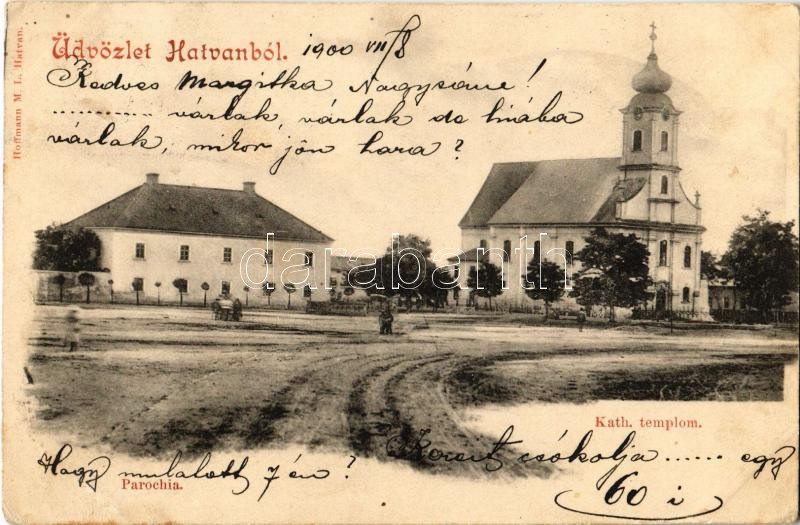 Hoffmann M. L. Hatvan.
Üdvözlet Hatvanból. 1900 VII/8
Kedves Margitka Nagysám!
............ várlak, várlak de hiába
várlak, mikor jön haza?
darabanth
Kath. templom.
Hogy mulatott 7én?
csókolja ...... egy
60 i
Parochia.